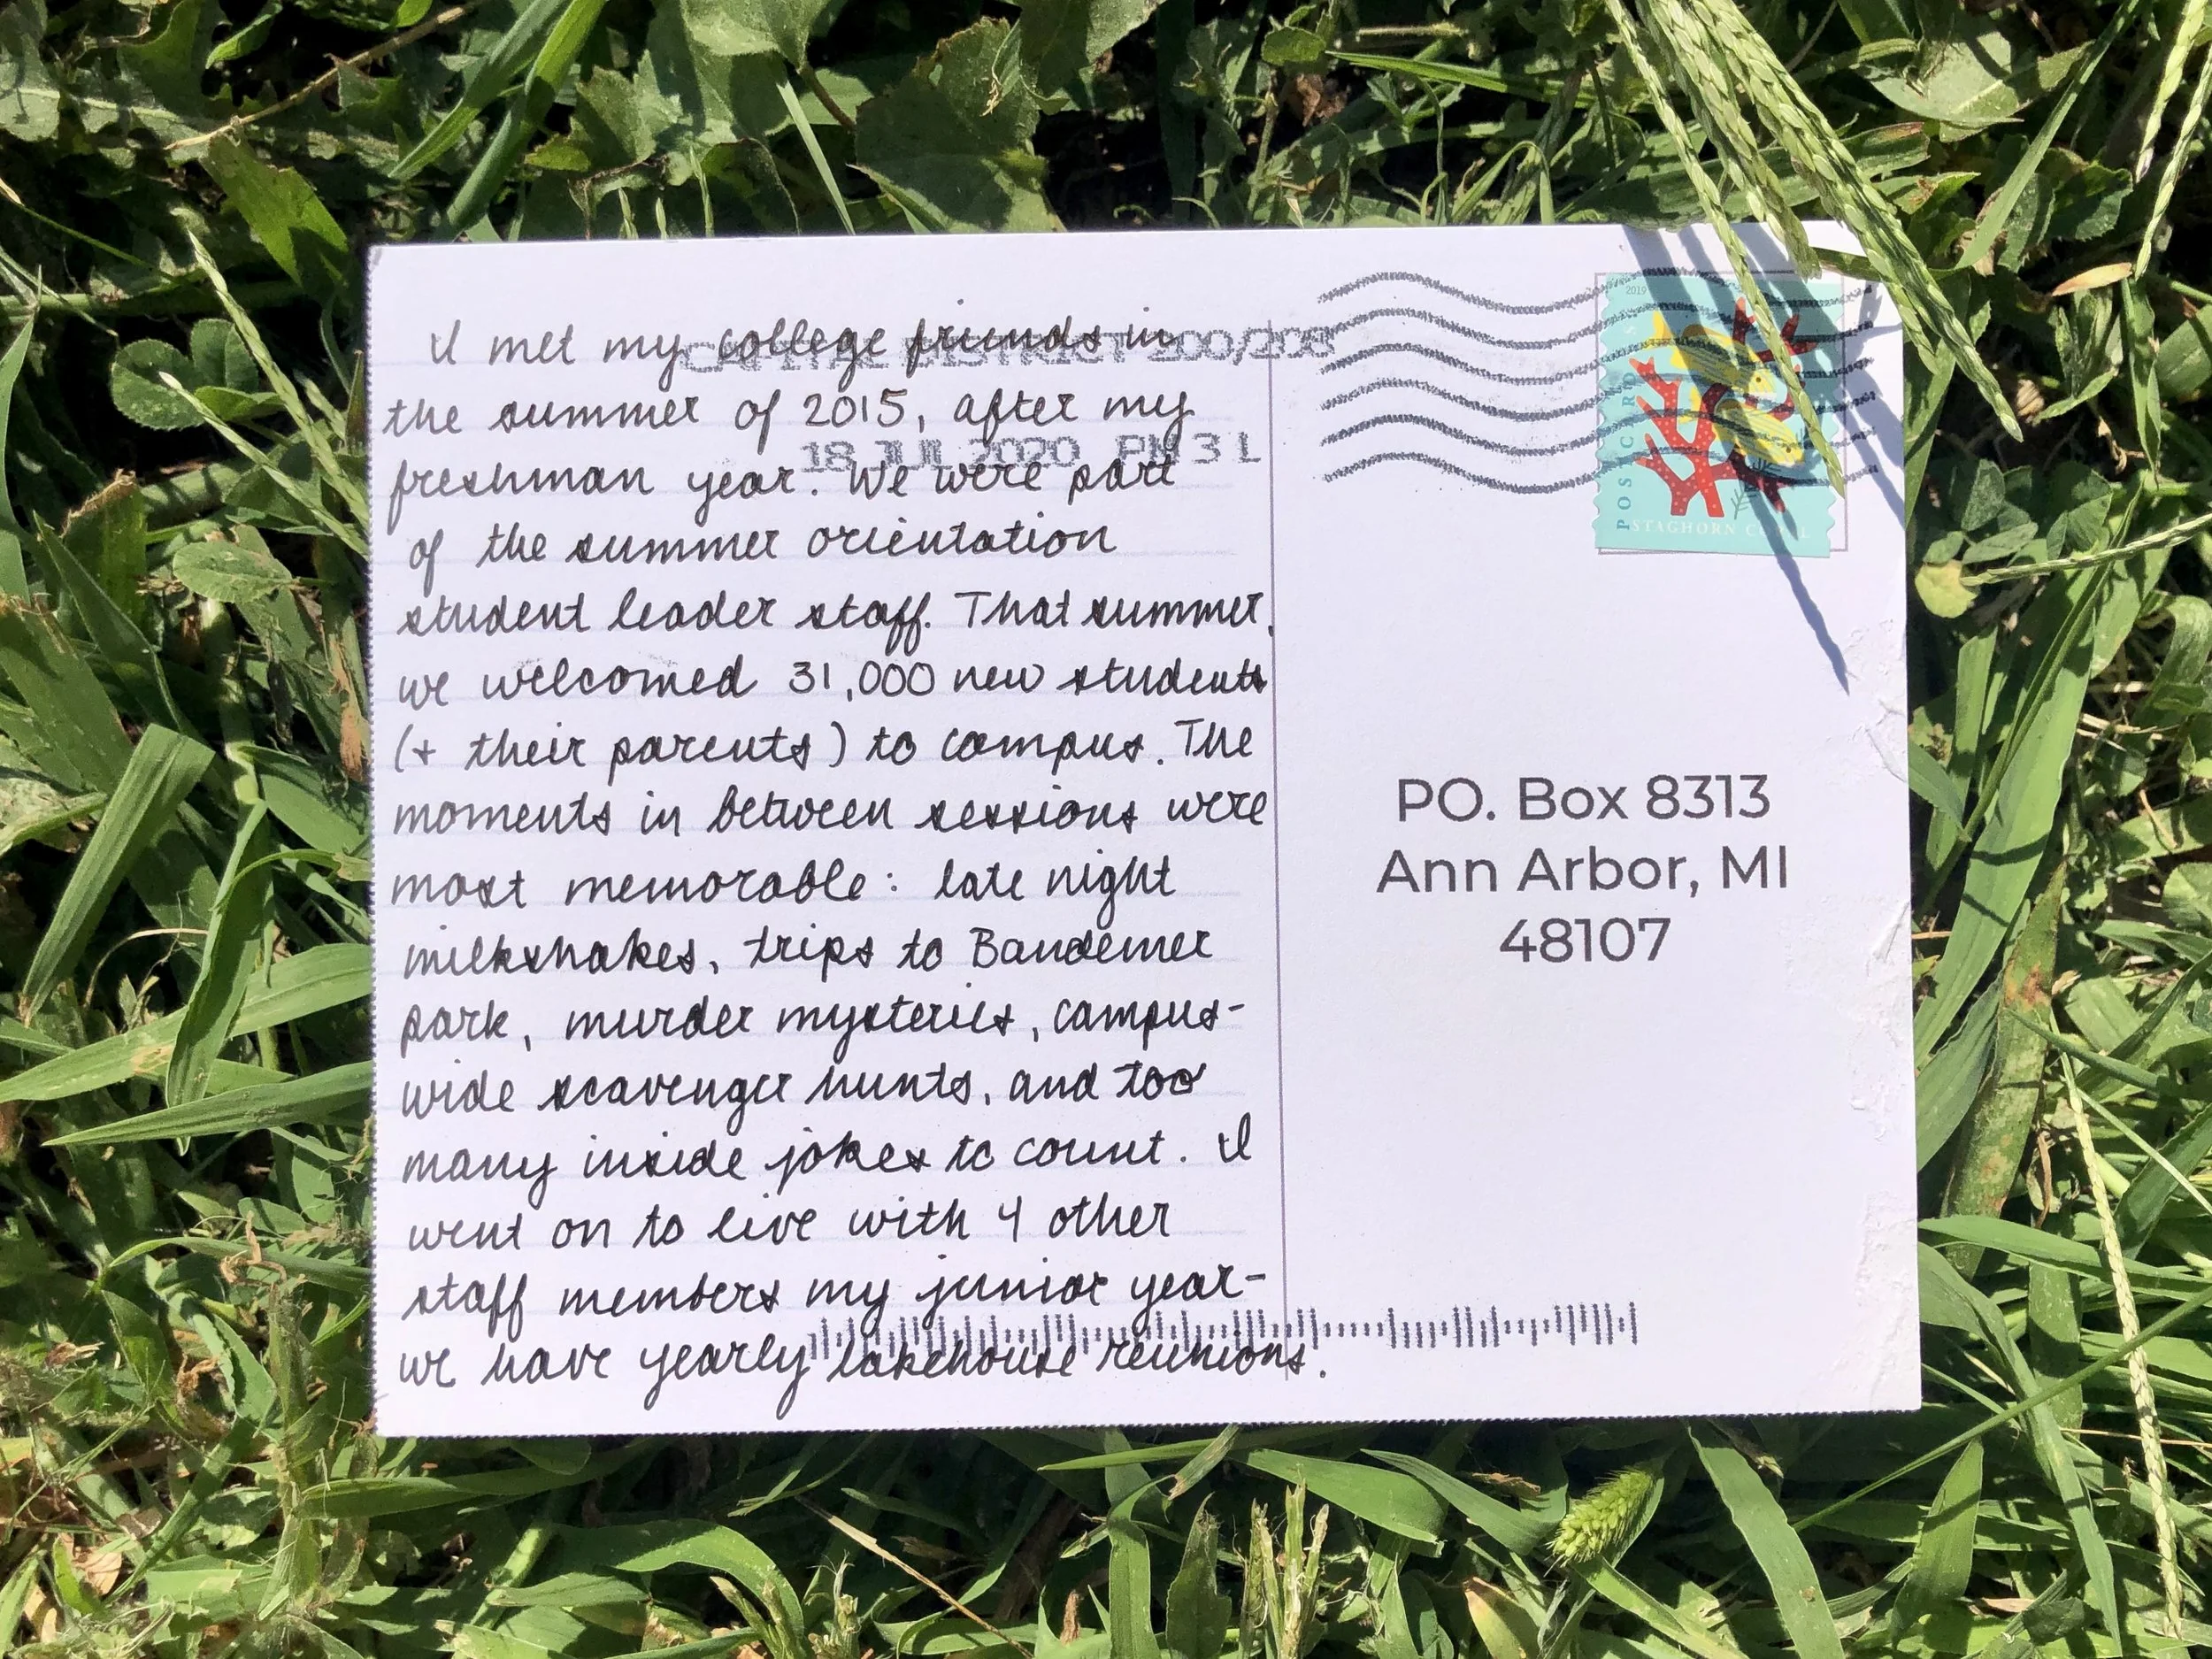 I met my college friends in
the summer of 2015, after my
freshman year. We were part
of the summer orientation
student leader staff. That summer,
we welcomed 31,000 new students
(+ their parents) to campus. The
moments in between sessions were
most memorable: late night
milkshakes, trips to Bandemer
park, murder mysteries, campus-
wide scavenger hunts, and too
many inside jokes to count. I
went on to live with 4 other
staff members my junior year-
we have yearly lakehouse reunions.
CAPITAL DISTRICT 200/208
18 JUL 2020 PM 3 L
2019
POSTCARD
STAGHORN CORAL
PO. Box 8313
Ann Arbor, MI
48107